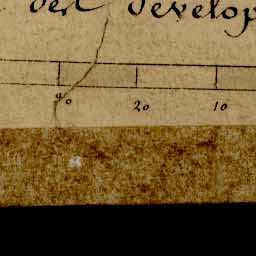 der Develop
30 20 10